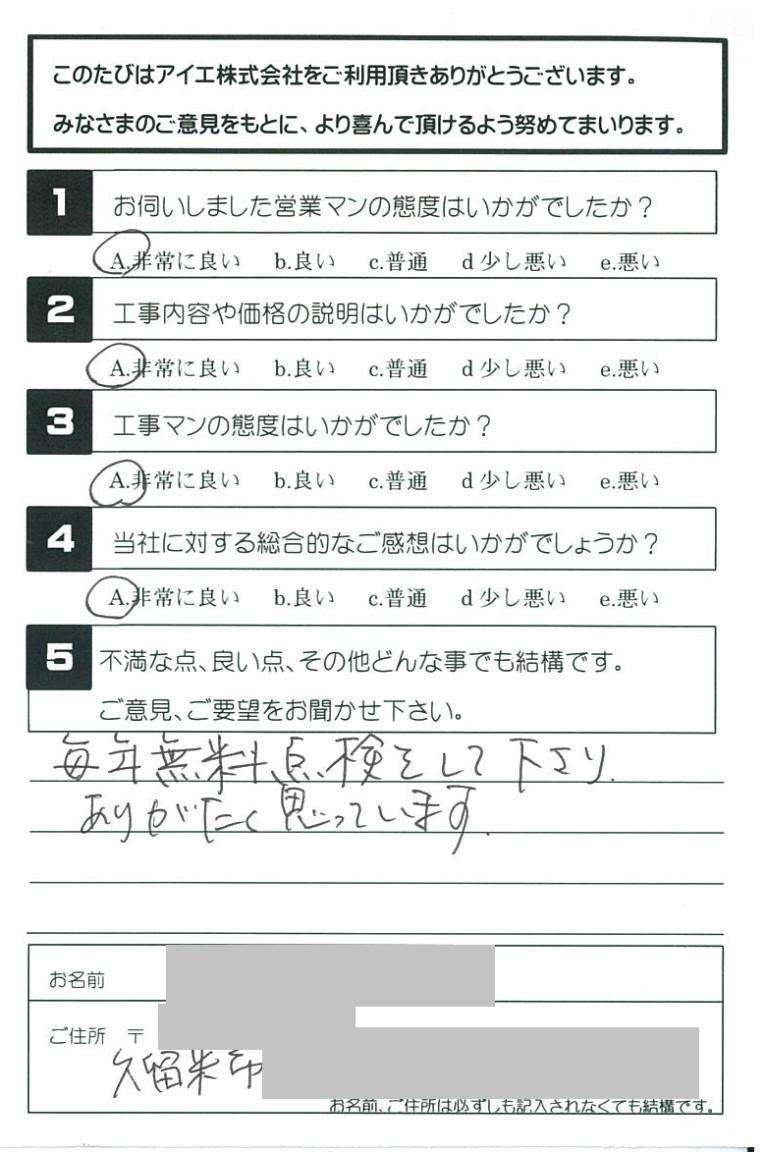 このたびはアイエ株式会社をご利用頂きありがとうございます。
みなさまのご意見をもとに、より喜んで頂けるよう努めてまいります。
1 お伺いしました営業マンの態度はいかがでしたか？
A.非常に良い b.良い c.普通 d 少し悪い e.悪い
2 工事内容や価格の説明はいかがでしたか？
A.非常に良い b.良い c.普通 d 少し悪い e.悪い
3 工事マンの態度はいかがでしたか？
A.非常に良い b.良い c.普通 d 少し悪い e.悪い
4 当社に対する総合的なご感想はいかがでしょうか？
A.非常に良い b.良い c.普通 d 少し悪い e.悪い
5 不満な点、良い点、その他どんな事でも結構です。
ご意見、ご要望をお聞かせ下さい。
毎年無料点検をして下さり、
ありがたく思っています。
お名前
ご住所 〒
久留米市
お名前、ご住所は必ずしも記入されなくても結構です。